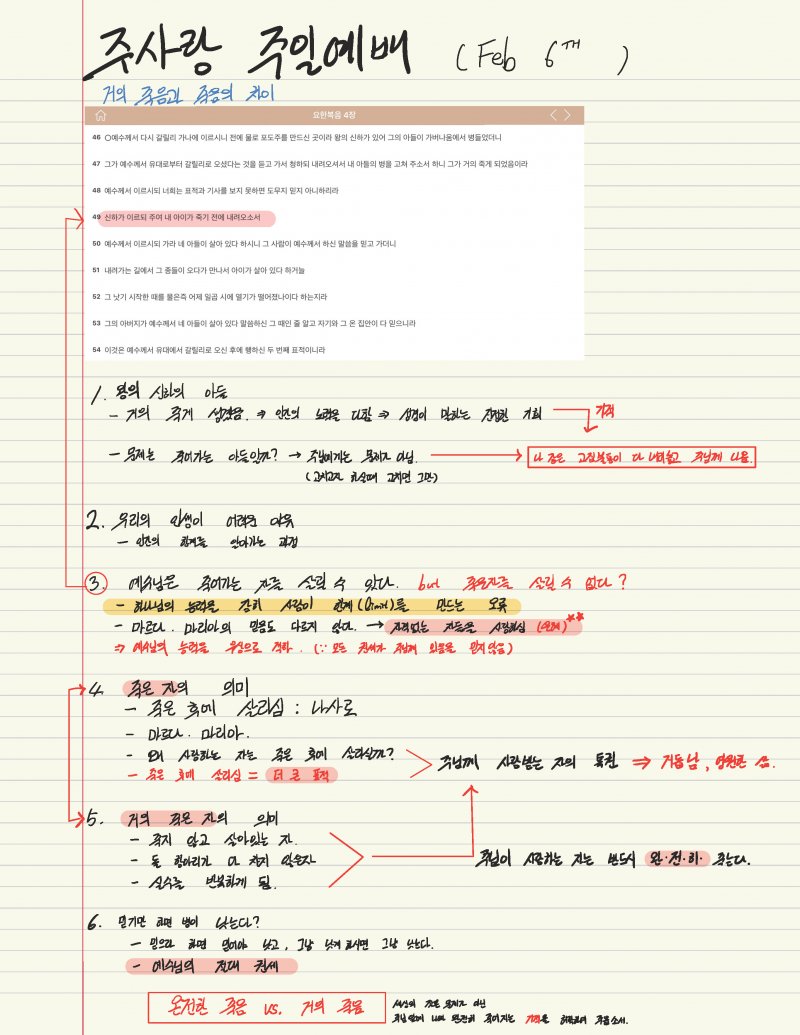 주사랑 주일예배 (Feb 6th)
거의 죽음과 죽음의 차이
요한복음 4장
46 ○예수께서 다시 갈릴리 가나에 이르시니 전에 물로 포도주를 만드신 곳이라 왕의 신하가 있어 그의 아들이 가버나움에서 병들었더니
47 그가 예수께서 유대로부터 갈릴리로 오셨다는 것을 듣고 가서 청하되 내려오셔서 내 아들의 병을 고쳐 주소서 하니 그가 거의 죽게 되었음이라
48 예수께서 이르시되 너희는 표적과 기사를 보지 못하면 도무지 믿지 아니하리라
49 신하가 이르되 주여 내 아이가 죽기 전에 내려오소서
50 예수께서 이르시되 가라 네 아들이 살아 있다 하시니 그 사람이 예수께서 하신 말씀을 믿고 가더니
51 내려가는 길에서 그 종들이 오다가 만나서 아이가 살아 있다 하거늘
52 그 낫기 시작한 때를 물은즉 어제 일곱 시에 열기가 떨어졌나이다 하는지라
53 그의 아버지가 예수께서 네 아들이 살아 있다 말씀하신 그 때인 줄 알고 자기와 그 온 집안이 다 믿으니라
54 이것은 예수께서 유대에서 갈릴리로 오신 후에 행하신 두 번째 표적이니라
1. 왕의 신하의 아들
- 거의 죽게 생겼음. ⇒ 인간의 노력을 다함 ⇒ 성경이 말하는 진정한 기회 기적
- 문제는 죽어가는 아들인가? → 주님에게는 문제가 아님. → 나 같은 고집불통이 다 내려놓고 주님께 나옴.
(고치고자 하실때 고치면 그만)
2. 우리의 인생이 어려운 이유
- 인간의 한계를 알아가는 과정
3. 예수님은 죽어가는 자를 살릴 수 있다. but 죽은자를 살릴 수 없다?
- 하나님의 능력을 감히 사람이 한계(limit)를 만드는 오류
- 마르다. 마리아의 믿음도 다르지 않다. → 자격없는 자들을 사랑하심 (은혜)**
⇒ 예수님의 능력을 우상으로 격하. (∵ 모든 권세가 주님께 있음을 믿지않음)
4. 죽은 자의 의미
- 죽은 후에 살리심 : 나사로
- 마르다. 마리아.
- 왜 사랑하는 자는 죽은 후에 살리실까?
주님께 사랑받는 자의 특권 ⇒ 거듭남, 영원한 삶.
- 죽은 후에 살리심 = 더 큰 표적
5. 거의 죽은 자의 의미
- 죽지 않고 살아있는 자.
- 둘 항아리가 다 차지 않은자
주님이 사랑하는 자는 반드시 완·전·히· 죽는다.
- 실수를 반복하게 됨.
6. 믿기만 하면 병이 낫는다?
- 믿으라 하면 믿어야 낫고, 그냥 낫게 하시면 그냥 낫는다.
- 예수님의 절대 권세
온전한 죽음 vs. 거의 죽음
죽은 문제가 아닌
주님 앞에 나와 완전히 죽어지는 기적을 허락하여 주옵소서.